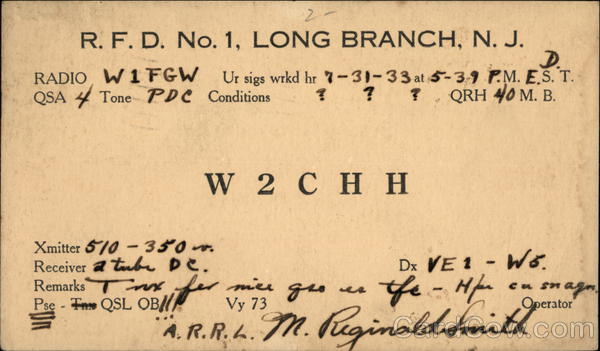 2-
R. F. D. No. 1, LONG BRANCH, N. J.
RADIO W1FGW Ur sigs wrkd hr 7-31-33 at 5-39 P.M. E.D.S.T.
QSA 4 Tone PDC Conditions ? ? ? QRH 40 M. B.
W 2 C H H
Xmitter 510-350 v.
Receiver 2 tube DC. Dx VE1 - W5.
Remarks Tnx fer nice qso es tfc - Hpe cu snagn.
Pse - Tnx QSL OB!!! Vy 73 Operator
A.R.R.L. M. Reginald Smith
CardCow.com